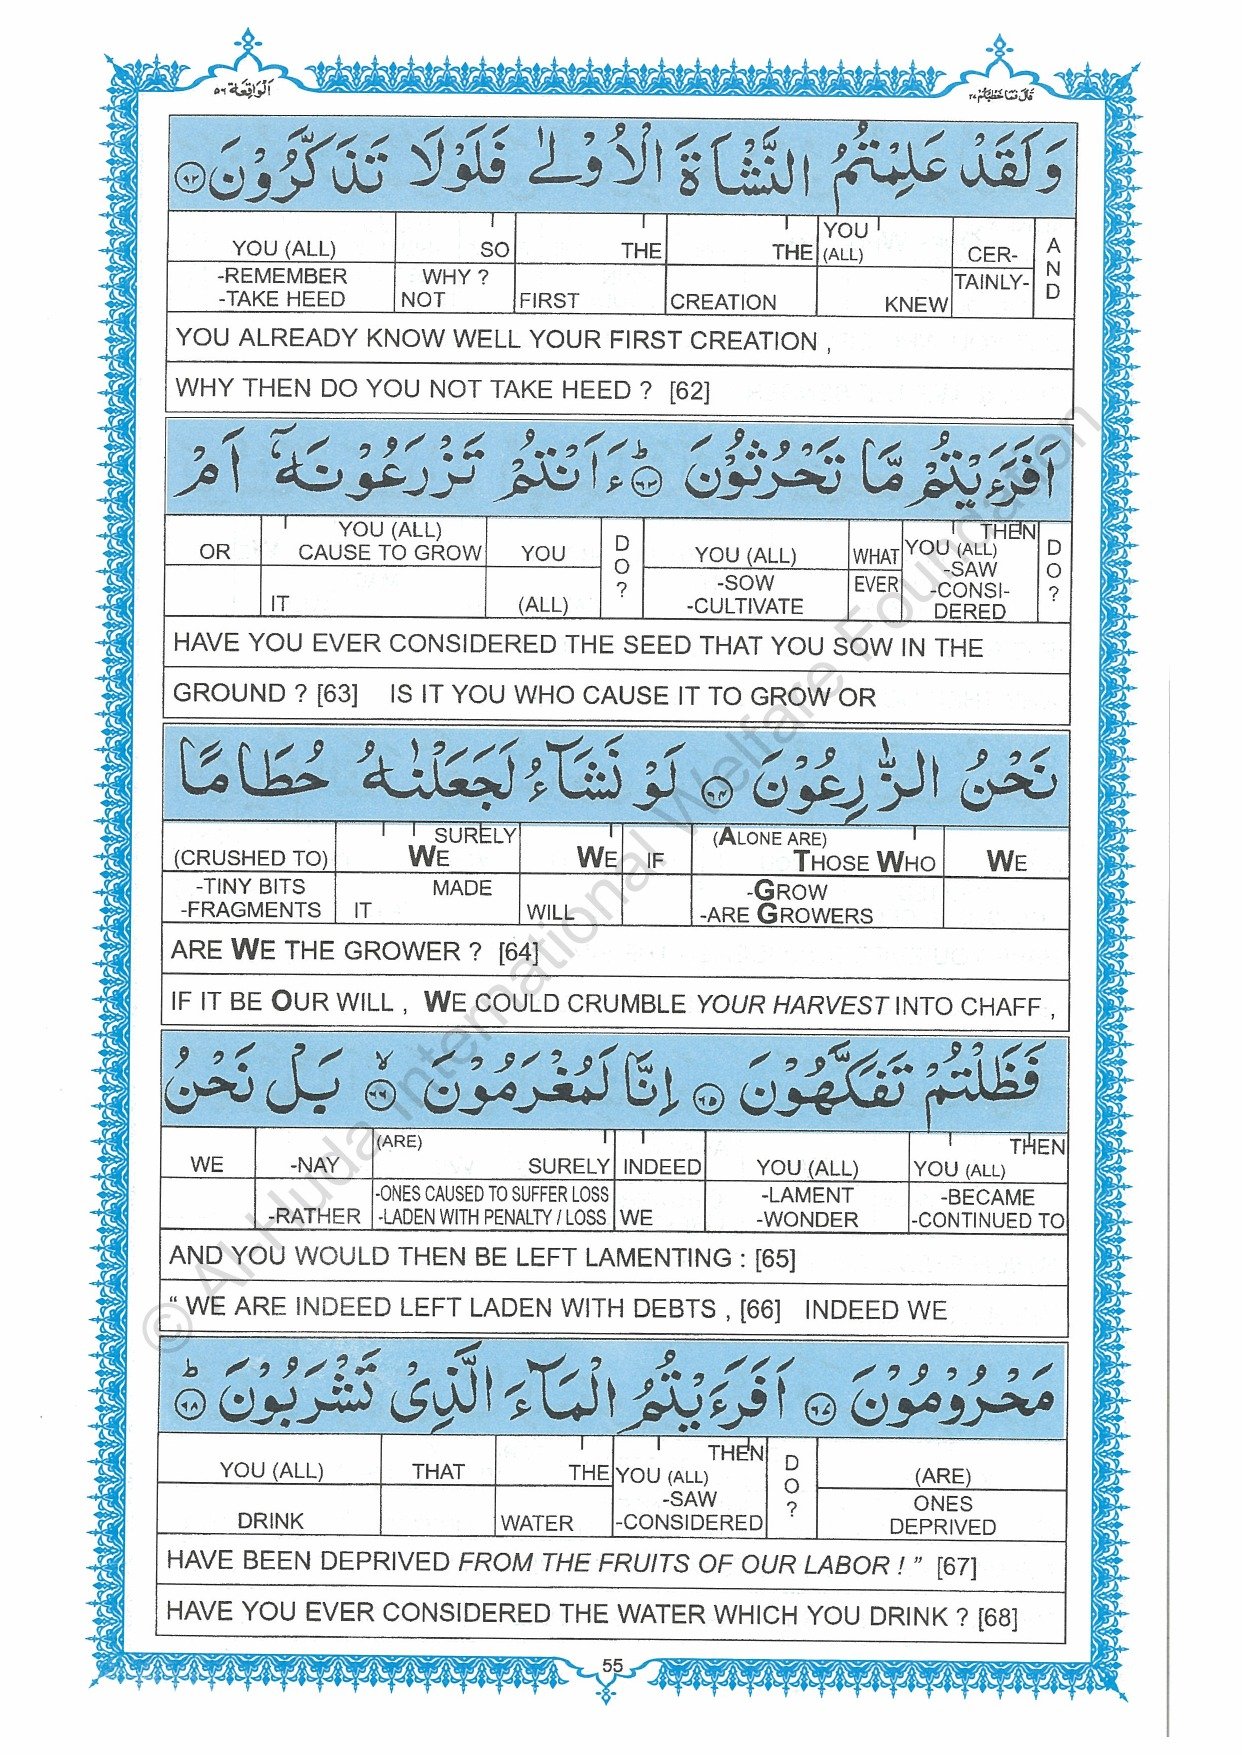 اَلْوَاقِعَة ٥٦
قَالَ فَمَا خَطْبُكُمْ ٢٧
وَلَقَدْ عَلِمْتُمُ النَّشْاَةَ الْاُوْلٰى فَلَوْلَا تَذَكَّرُوْنَ ٦٢
YOU (ALL) SO THE THE YOU (ALL) CER- AND
-REMEMBER -TAKE HEED WHY ? NOT FIRST CREATION KNEW TAINLY-
YOU ALREADY KNOW WELL YOUR FIRST CREATION ,
WHY THEN DO YOU NOT TAKE HEED ? [62]
اَفَرَءَيْتُمْ مَّا تَحْرُثُوْنَ ؕ ٦٣ ءَاَنْتُمْ تَزْرَعُوْنَهٗۤ اَمْ
OR YOU (ALL) CAUSE TO GROW YOU DO? YOU (ALL) WHAT THEN YOU (ALL) DO?
IT (ALL) -SOW -CULTIVATE EVER -SAW -CONSI- DERED
HAVE YOU EVER CONSIDERED THE SEED THAT YOU SOW IN THE
GROUND ? [63] IS IT YOU WHO CAUSE IT TO GROW OR
نَحْنُ الزّٰرِعُوْنَ ٦٤ لَوْ نَشَآءُ لَجَعَلْنٰهُ حُطَامًا
(CRUSHED TO) SURELY WE WE IF (ALONE ARE) THOSE WHO WE
-TINY BITS -FRAGMENTS IT MADE WILL -GROW -ARE GROWERS
ARE WE THE GROWER ? [64]
IF IT BE OUR WILL , WE COULD CRUMBLE YOUR HARVEST INTO CHAFF ,
فَظَلْتُمْ تَفَكَّهُوْنَ ٦٥ اِنَّا لَمُغْرَمُوْنَ ۙ ٦٦ بَلْ نَحْنُ
WE -NAY (ARE) SURELY INDEED YOU (ALL) THEN YOU (ALL)
-RATHER -ONES CAUSED TO SUFFER LOSS -LADEN WITH PENALTY / LOSS WE -LAMENT -WONDER -BECAME -CONTINUED TO
AND YOU WOULD THEN BE LEFT LAMENTING : [65]
“ WE ARE INDEED LEFT LADEN WITH DEBTS , [66] INDEED WE
مَحْرُوْمُوْنَ ٦٧ اَفَرَءَيْتُمُ الْمَآءَ الَّذِىْ تَشْرَبُوْنَ ؕ ٦٨
YOU (ALL) THAT THE THEN YOU (ALL) DO? (ARE)
DRINK WATER -SAW -CONSIDERED ONES DEPRIVED
HAVE BEEN DEPRIVED FROM THE FRUITS OF OUR LABOR ! ” [67]
HAVE YOU EVER CONSIDERED THE WATER WHICH YOU DRINK ? [68]
55
© Al Huda International Welfare Foundation